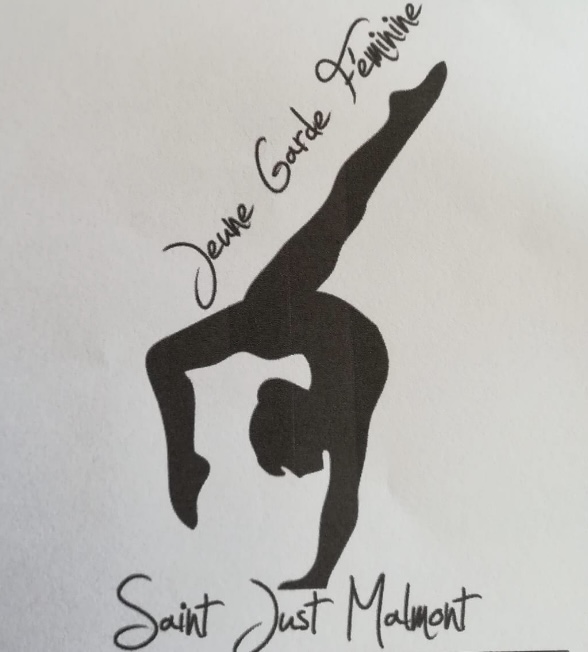 Jeune Garde Féminine
Saint Just Malmont